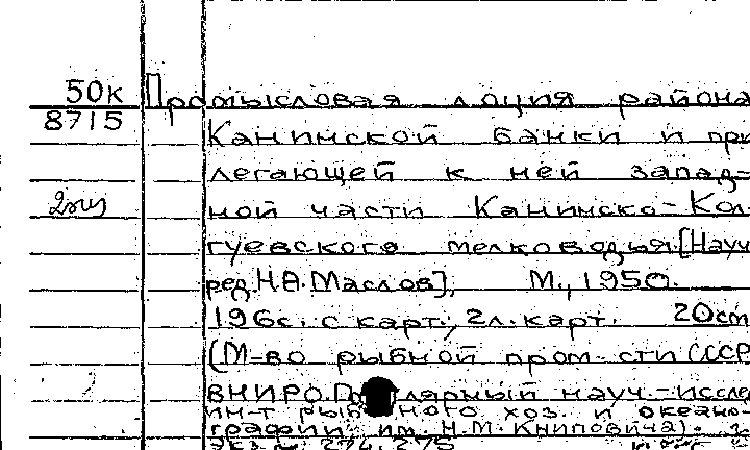 50к Промысловая лоция района
8715 Канинской банки и при
легающей к ней запад-
2экз ной части Канинско-Кол-
гуевского мелководья. [Науч
ред. Н.А. Маслов]. М., 1950.
196с. с карт.; 2л. карт. 20см
(М-во рыбной пром-сти СССР
ВНИРО. П лярный науч.-иссле
ин-т рыб ного хоз. и океано-
графии им. Н.М. Книповича).
Экз. 274.275